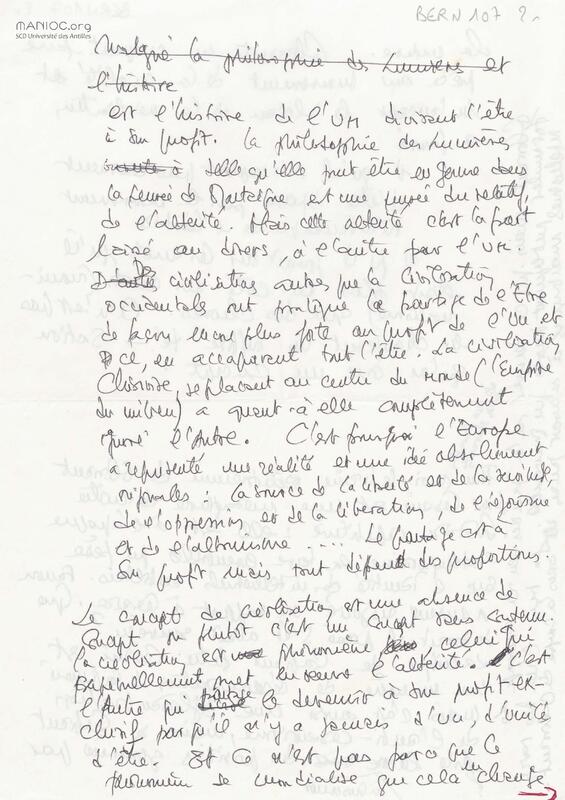 MANIOC.org
SCD Université des Antilles
BERN 107 2.
Malgré la philosophie des Lumières et
l'histoire
est l'histoire de l'Un divisant l'être
à son profit. La philosophie des Lumières
à telle qu'elle peut être en germe dans
la pensée de Montaigne est une pensée du relatif,
de l'altérité. Mais cette altérité c'est la part
laissé au divers, à l'autre par l'Un.
Des civilisations autres que la Civilisation
occidentale ont pratiqué le partage de l'Être
de façon encore plus forte au profit de l'Un et
ce, en accaparant tout l'être. La civilisation
Chinoise, se plaçant au centre du monde (l'Empire
du milieu) a quant à elle complètement
ignoré l'Autre. C'est pourquoi l'Europe
a représenté une réalité et une idée absolument
originales : la source de la liberté et de la servitude,
de l'oppression et de la libération, de l'égoïsme
et de l'altruisme .... Le partage est à
son profit mais tout dépend des proportions.
Le concept de créolisation est une absence de
concept ou plutôt c'est un concept sans contenu.
La créolisation est phénomène, celui qui
perpétuellement met en oeuvre l'altérité. C'est
l'Autre qui le devenir à son profit ex-
clusif parqu'il n'y a jamais d'Un d'unité
d'être. Et ce n'est pas parce que ce
phénomène se mondialise que cela change